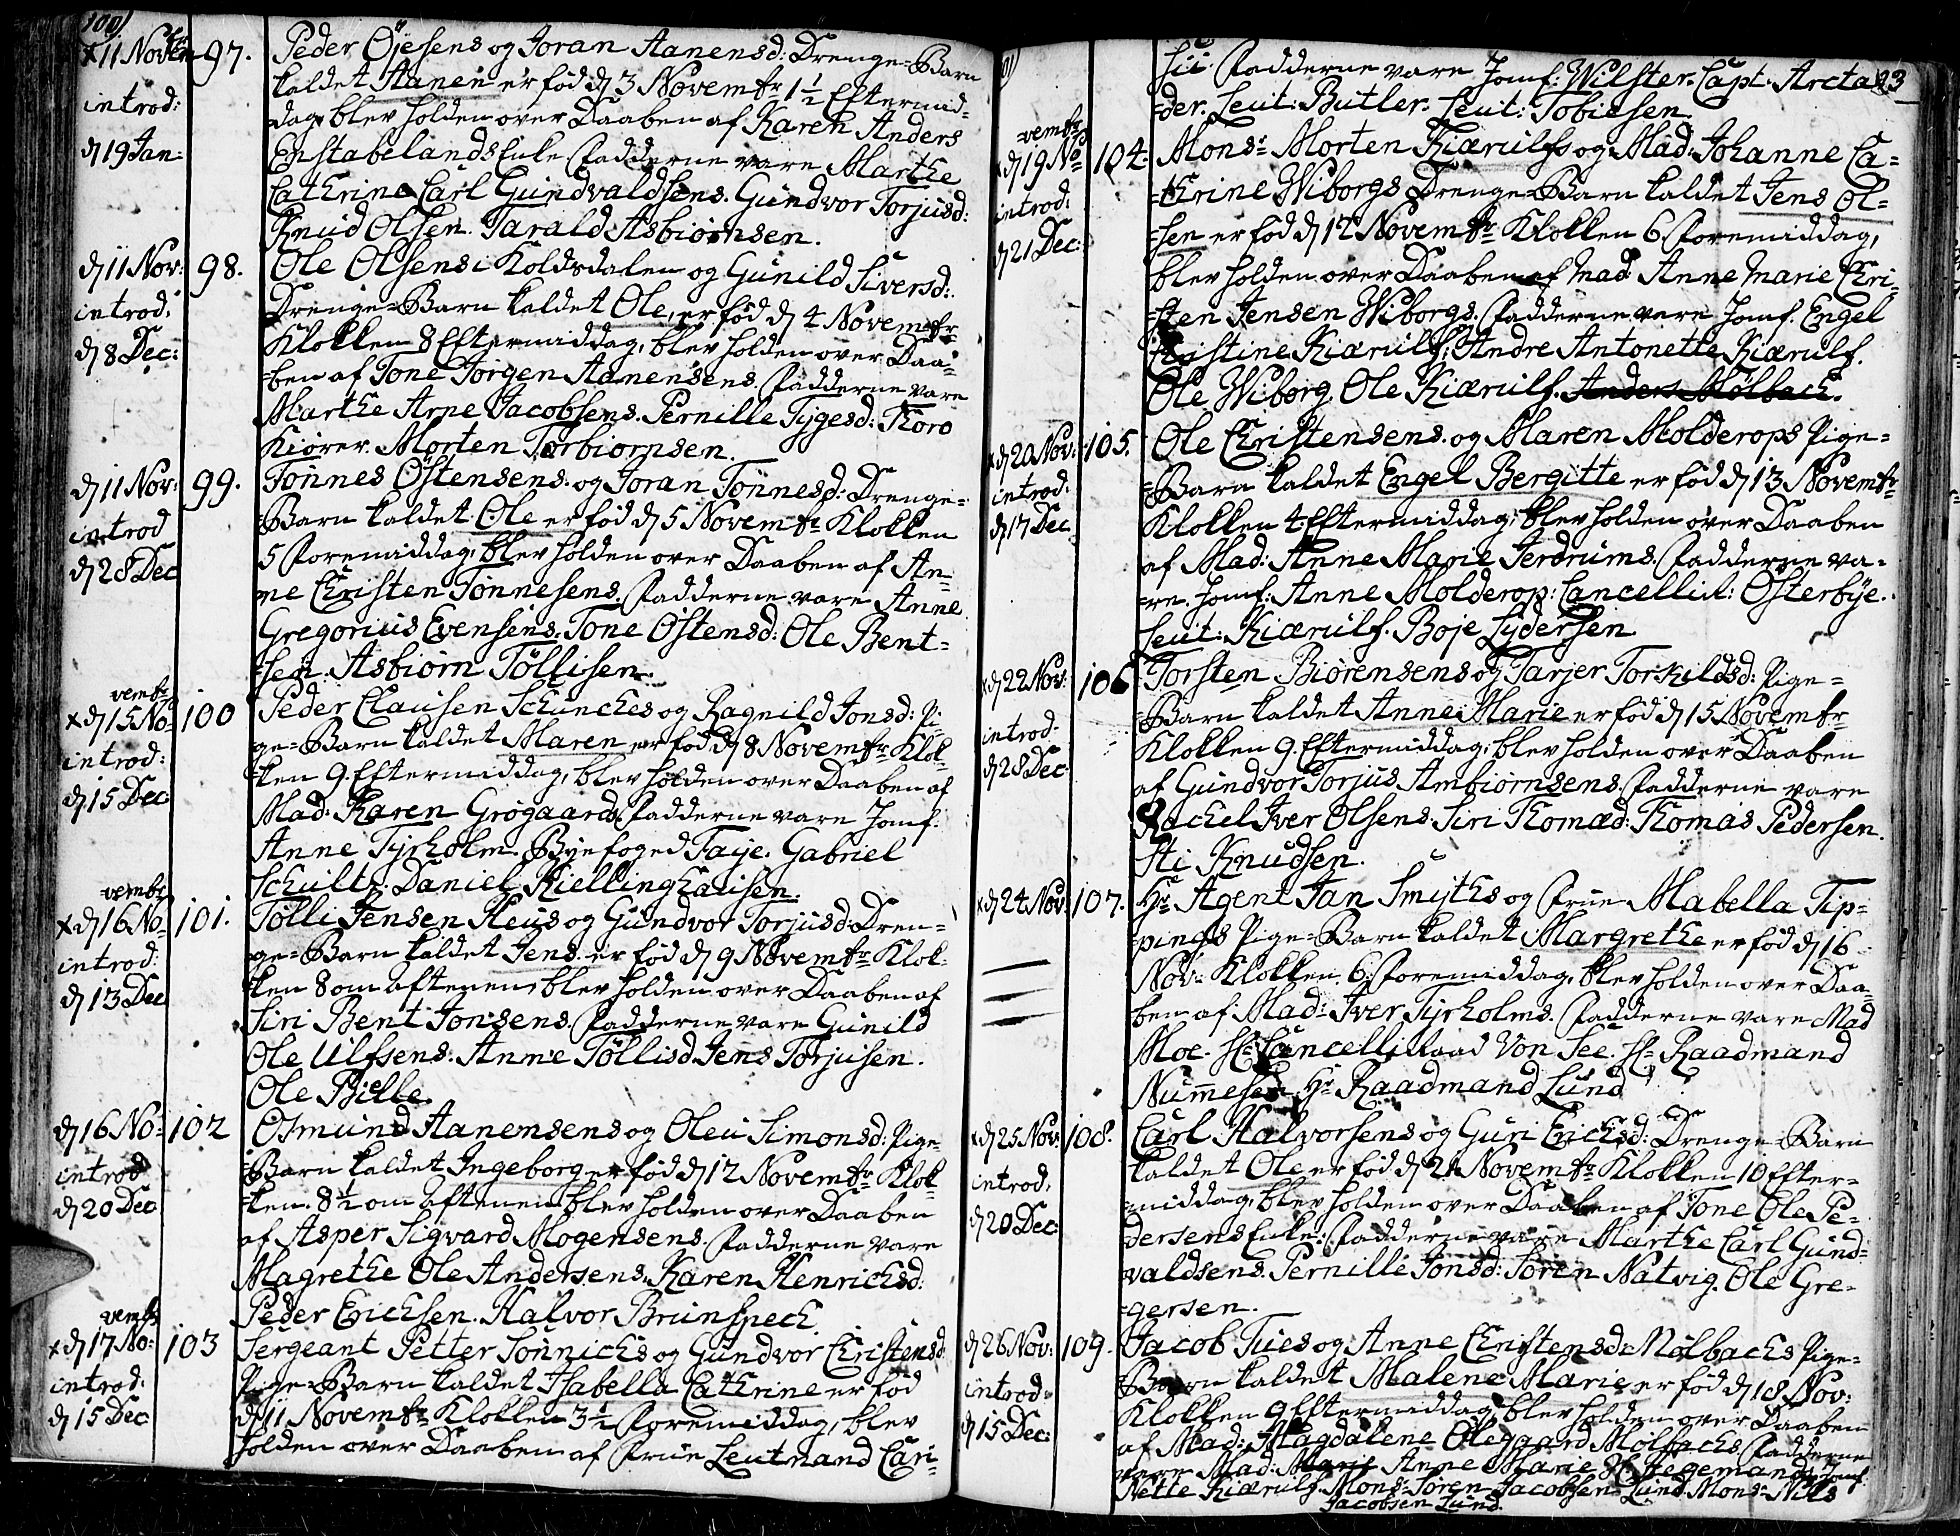 100)
x 11 Novem 97. Peder Öÿesens og Joran Aanensd: Drenge-Barn
introd: kaldet Aanen er fød d 3 Novembr 1½ Eftermid-
dag, blev holden over Daaben af Karen Anders
d 19 Jan: Enstabelands Enke Fadderne vare Marthe
Cathrine Carl Gundvaldsens. Gundvor Torjusd:
Knud Olsen. Tarald Asbiørnsen.
d 11 Nov: 98. Ole Olsens i Koldsdalen og Gunild Siversd:
introd: Drenge-Barn kaldet Ole, er fød d 4 Novembr
d 8 Dec: Klokken 8 Eftermiddag, blev holden over Daa-
ben af Tone Jørgen Aanensens. Fadderne vare
Marthe Arne Jacobsens. Pernille Tygesd: Thoro
Kiører. Morten Torbiørnsen.
d 11 Nov: 99. Tønnes Östensens. og Joran Tønnesd: Drenge-
introd Barn kaldet Ole er fød d 5 Novembr Klokken
d 28 Dec 5 Foremiddag, blev holden over Daaben af An-
ne Christen Tønnesens. Fadderne vare Anne
Gregorius Evensens. Tone Östensd: Ole Bent-
sen. Asbiørn Töllisen.
vembr
x d 15 No- 100 Peder Clausen Schunches og Ragnild Jonsd: Pi-
introd: ge-Barn kaldet Maren er fød d 8 Novembr Klok-
d 15 Dec: ken 9. Eftermiddag, blev holden over Daaben af
Mad: Karen Grøgaards. Fadderne vare Jomf:
Anne Tyrholm. Byefoged Faye. Gabriel
Schultz. Daniel Kiellinghausen.
vembr
x d 16 No- 101. Tölli Jensen Heus og Gundvor Torjusd: Dren-
introd: ge-Barn kaldet Jens er fød d 9 Novembr Klok-
d 13 Dec ken 8 om aftenen, blev holden over Daaben af
Siri Bent Jonsens. Fadderne vare Gunild
Ole Ulfsens. Anne Töllisd. Jens Torjusen.
Ole Bille.
d 16 No- 102 Osmund Aanensens og Oleu Simonsd: Pige-
introd Barn kaldet Ingeborg er fød d 12 Novembr Klok-
d 20 Dec ken. 8½ om aftenen blev holden over Daaben
af Asper Sigvard Mogensens. Fadderne vare
Magrethe Ole Andersens. Karen Henrichsd:
Peder Erichsen. Halvor Brunspech.
vembr
x d 17 No: 103 Sergeant Petter Sönnichs og Gundvor Christensd
introd: Pige-Barn kaldet Isabella Cathrine er fød
d 15 Dec d 11 Novembr Klokken 3½ Foremiddag, blev
holden over Daaben af Frue Leutnand Cari-
101)
sii. Fadderne vare Jomf: Wilster. Capt: Arctan- 93
der. Leut: Butler. Leut: Tobiesen.
vembr
x d 19 No 104. Monsr Morten Kiærulfs og Mad. Johanne Ca-
introd: thrine Wiborgs Drenge-Barn kaldet Jens Ol-
d 21 Dec: sen er fød d 12 Novembr Klokken 6 Foremiddag,
blev holden over Daaben af Mad: Anne Marie Chri-
sten Jensen Wiborgs. Fadderne vare Jomf. Engel
Christine Kiærulf. Andre Antonette Kiærulf.
Ole Wiborg. Ole Kiærulf. Anders Mölbach.
x d 20 Nov: 105. Ole Christensens. og Maren Molderops Pige-
introd: Barn kaldet Engel Bergitte er fød d 13 Novembr
d 17 Dec Klokken 4 Eftermiddag, blev holden over Daaben
af Mad: Anne Marie Jerdrums. Fadderne va-
re. Jomf: Anne Molderop: Cancellist: Österbÿe.
Leut: Kiærulf. Boje Lydersen.
x d 22 Nov: 106 Torsten Biørensens og Tarjer Torkildsd: Pige-
introd. Barn kaldet Anne Marie er fød d 15 Novembr
d 28 Dec: Klokken 9. Eftermiddag, blev holden over Daaben
af Gundvor Torjus Ambiørnsens. Fadderne vare
Rachel Iver Olsens. Siri Thomæd: Thomas Pedersen.
Sti Knudsen.
x d 24 Nov: 107. Hr Agent Jan Smiths og Frue Mabella Tip-
pings Pige-Barn kaldet Margrethe er fød d 16
Nov: Klokken. 6. Foremiddag, blev holden over Daa-
ben af Mad: Iver Tyrholms. Fadderne vare Mad
Moe. Hr Cancelliraad Von See. Hr Raadmand
Numesen. Hr Raadmand Lund
x d 25 Nov: 108. Carl Halvorsens og Guri Erichsd: Drenge-Barn
introd. kaldet Ole er fød d 21 Novembr Klokken 10 Efter-
d 20 Dec: middag, blev holden over Daaben af Tone Ole Pe-
dersens Enke. Fadderne vare Marthe Carl Gund-
valdsens. Pernille Jonsd: Søren Natvig. Ole Gre-
gersen.
d 26 Nov: 109. Jacob Tues og Anne Christensd: Mölbachs Pige-
introd: Barn kaldet Malene Marie er fød d 18 Nov:
d 15 Dec: Klokken 9 Eftermiddag, blev holden over Daaben
af Mad: Magdalene Olegaard Mölbachs. Fadderne
vare Mad: Marie Anne Marie Hegemands Jomf.
Nette Kiærulf. Monsr Søren Jacobsen Lund. Monsr Niels
Jacobsen Lund.